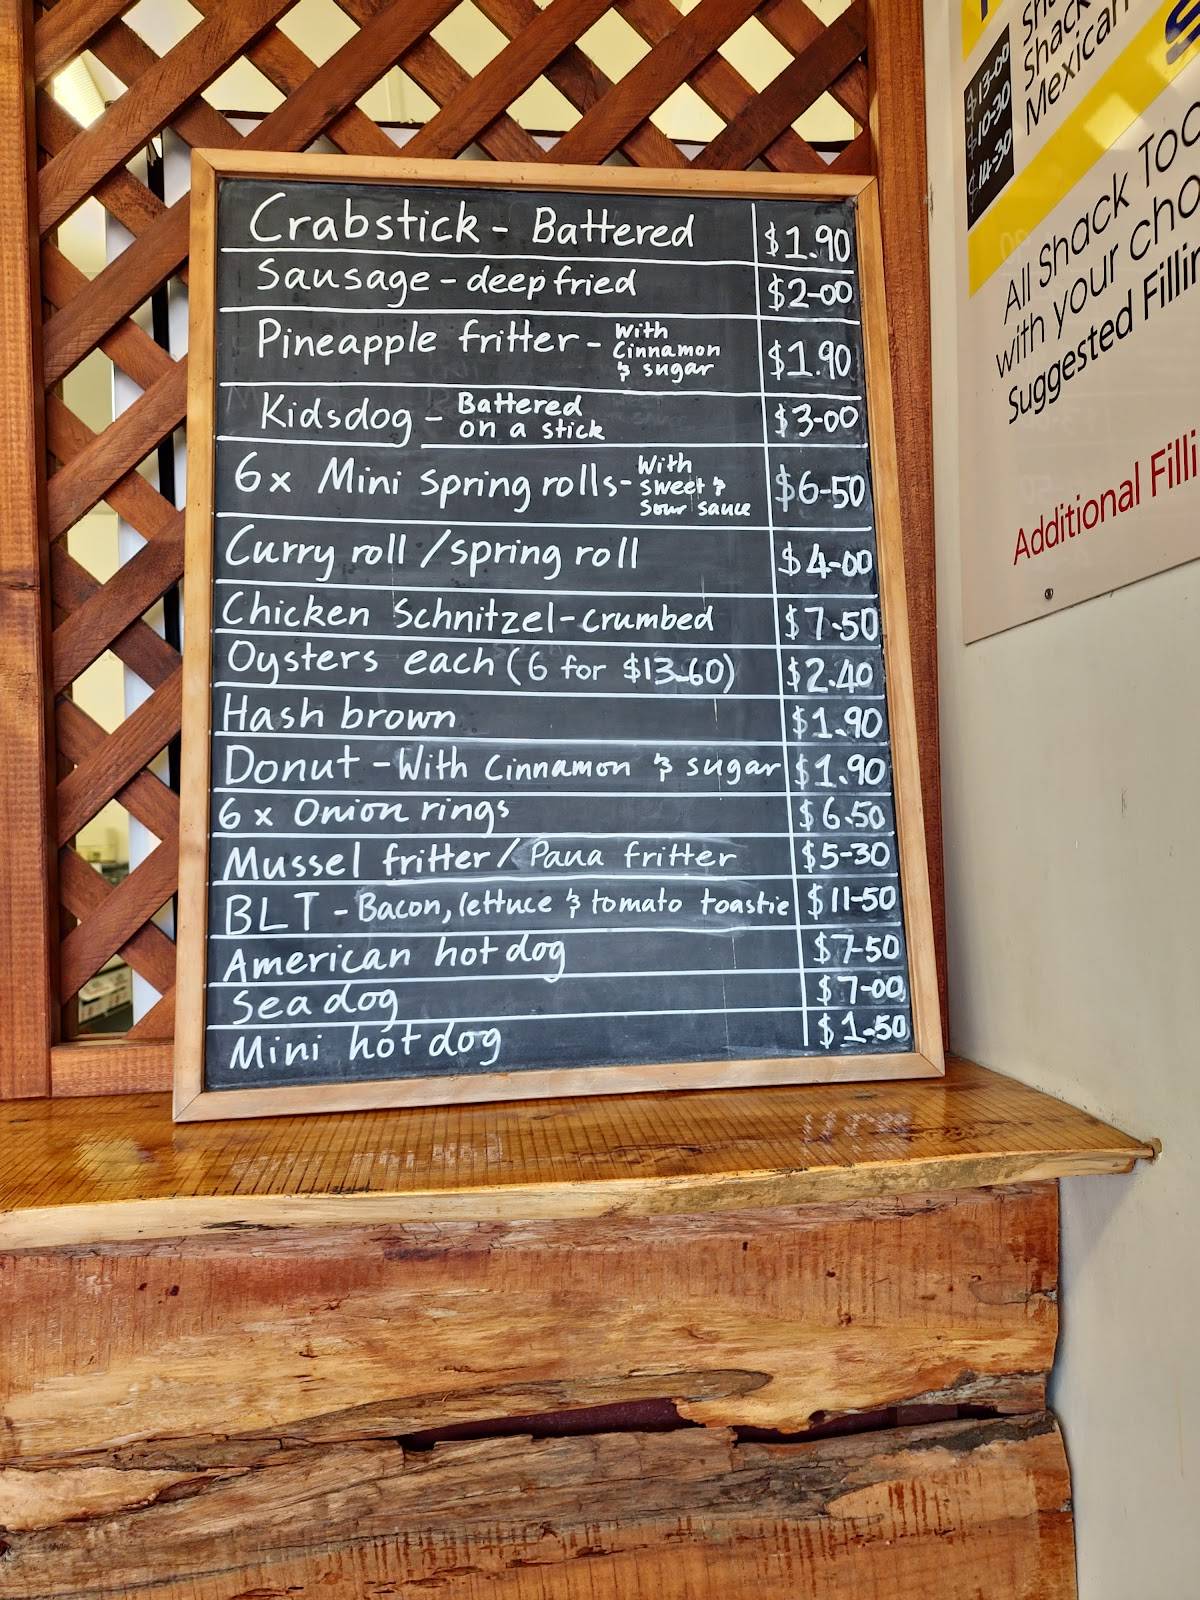 Crabstick - Battered $1.90
Sausage - deep fried $2-00
Pineapple fritter - With Cinnamon & sugar $1.90
Kidsdog - Battered on a stick $3-00
6x Mini Spring rolls - With sweet & sour sauce $6-50
Curry roll / spring roll $4-00
Chicken Schnitzel - crumbed $7.50
Oysters each (6 for $13.60) $2.40
Hash brown $1.90
Donut - With Cinnamon & sugar $1.90
6 x Onion rings $6.50
Mussel fritter / Paua fritter $5-30
BLT - Bacon, lettuce & tomato toastie $11-50
American hot dog $7-50
Sea dog $7-00
Mini hot dog $1-50
$13-00
$10-30 Shack
$14-30 Mexican
All Shack
with your
Suggested
Additional